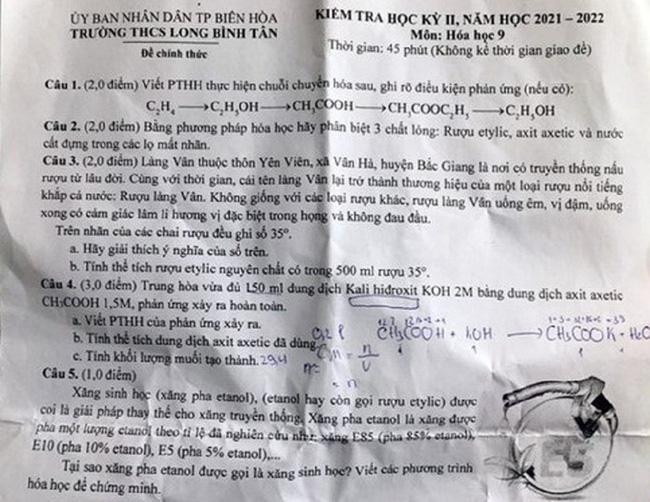 ỦY BAN NHÂN DÂN TP BIÊN HÒA
TRƯỜNG THCS LONG BÌNH TÂN
Đề chính thức
KIỂM TRA HỌC KỲ II, NĂM HỌC 2021 – 2022
Môn: Hóa học 9
Thời gian: 45 phút (Không kể thời gian giao đề)
Câu 1. (2,0 điểm) Viết PTHH thực hiện chuỗi chuyển hóa sau, ghi rõ điều kiện phản ứng (nếu có):
C₂H₄ ⟶ C₂H₅OH ⟶ CH₃COOH ⟶ CH₃COOC₂H₅ ⟶ C₂H₅OH
Câu 2. (2,0 điểm) Bằng phương pháp hóa học hãy phân biệt 3 chất lỏng: Rượu etylic, axit axetic và nước
cất đựng trong các lọ mất nhãn.
Câu 3. (2,0 điểm) Làng Vân thuộc thôn Yên Viên, xã Vân Hà, huyện Bắc Giang là nơi có truyền thống nấu
rượu từ lâu đời. Cùng với thời gian, cái tên làng Vân lại trở thành thương hiệu của một loại rượu nổi tiếng
khắp cả nước: Rượu làng Vân. Không giống với các loại rượu khác, rượu làng Vân uống êm, vị đậm, uống
xong có cảm giác lâm li hương vị đặc biệt trong họng và không đau đầu.
Trên nhãn của các chai rượu đều ghi số 35º.
a. Hãy giải thích ý nghĩa của số trên.
b. Tính thể tích rượu etylic nguyên chất có trong 500 ml rượu 35º.
Câu 4. (3,0 điểm) Trung hòa vừa đủ 150 ml dung dịch Kali hiđroxit KOH 2M bằng dung dịch axit axetic
CH₃COOH 1,5M, phản ứng xảy ra hoàn toàn.
a. Viết PTHH của phản ứng xảy ra.
CH₃COOH + KOH ⟶ CH₃COOK + H₂O
b. Tính thể tích dung dịch axit axetic đã dùng.
c. Tính khối lượng muối tạo thành. 29,4
CM = n/V
Câu 5. (1,0 điểm)
Xăng sinh học (xăng pha etanol), (etanol hay còn gọi rượu etylic) được
coi là giải pháp thay thế cho xăng truyền thống. Xăng pha etanol là xăng được
pha một lượng etanol theo tỉ lệ đã nghiên cứu như: xăng E85 (pha 85% etanol),
E10 (pha 10% etanol), E5 (pha 5% etanol),...
Tại sao xăng pha etanol được gọi là xăng sinh học? Viết các phương trình
hóa học để chứng minh.